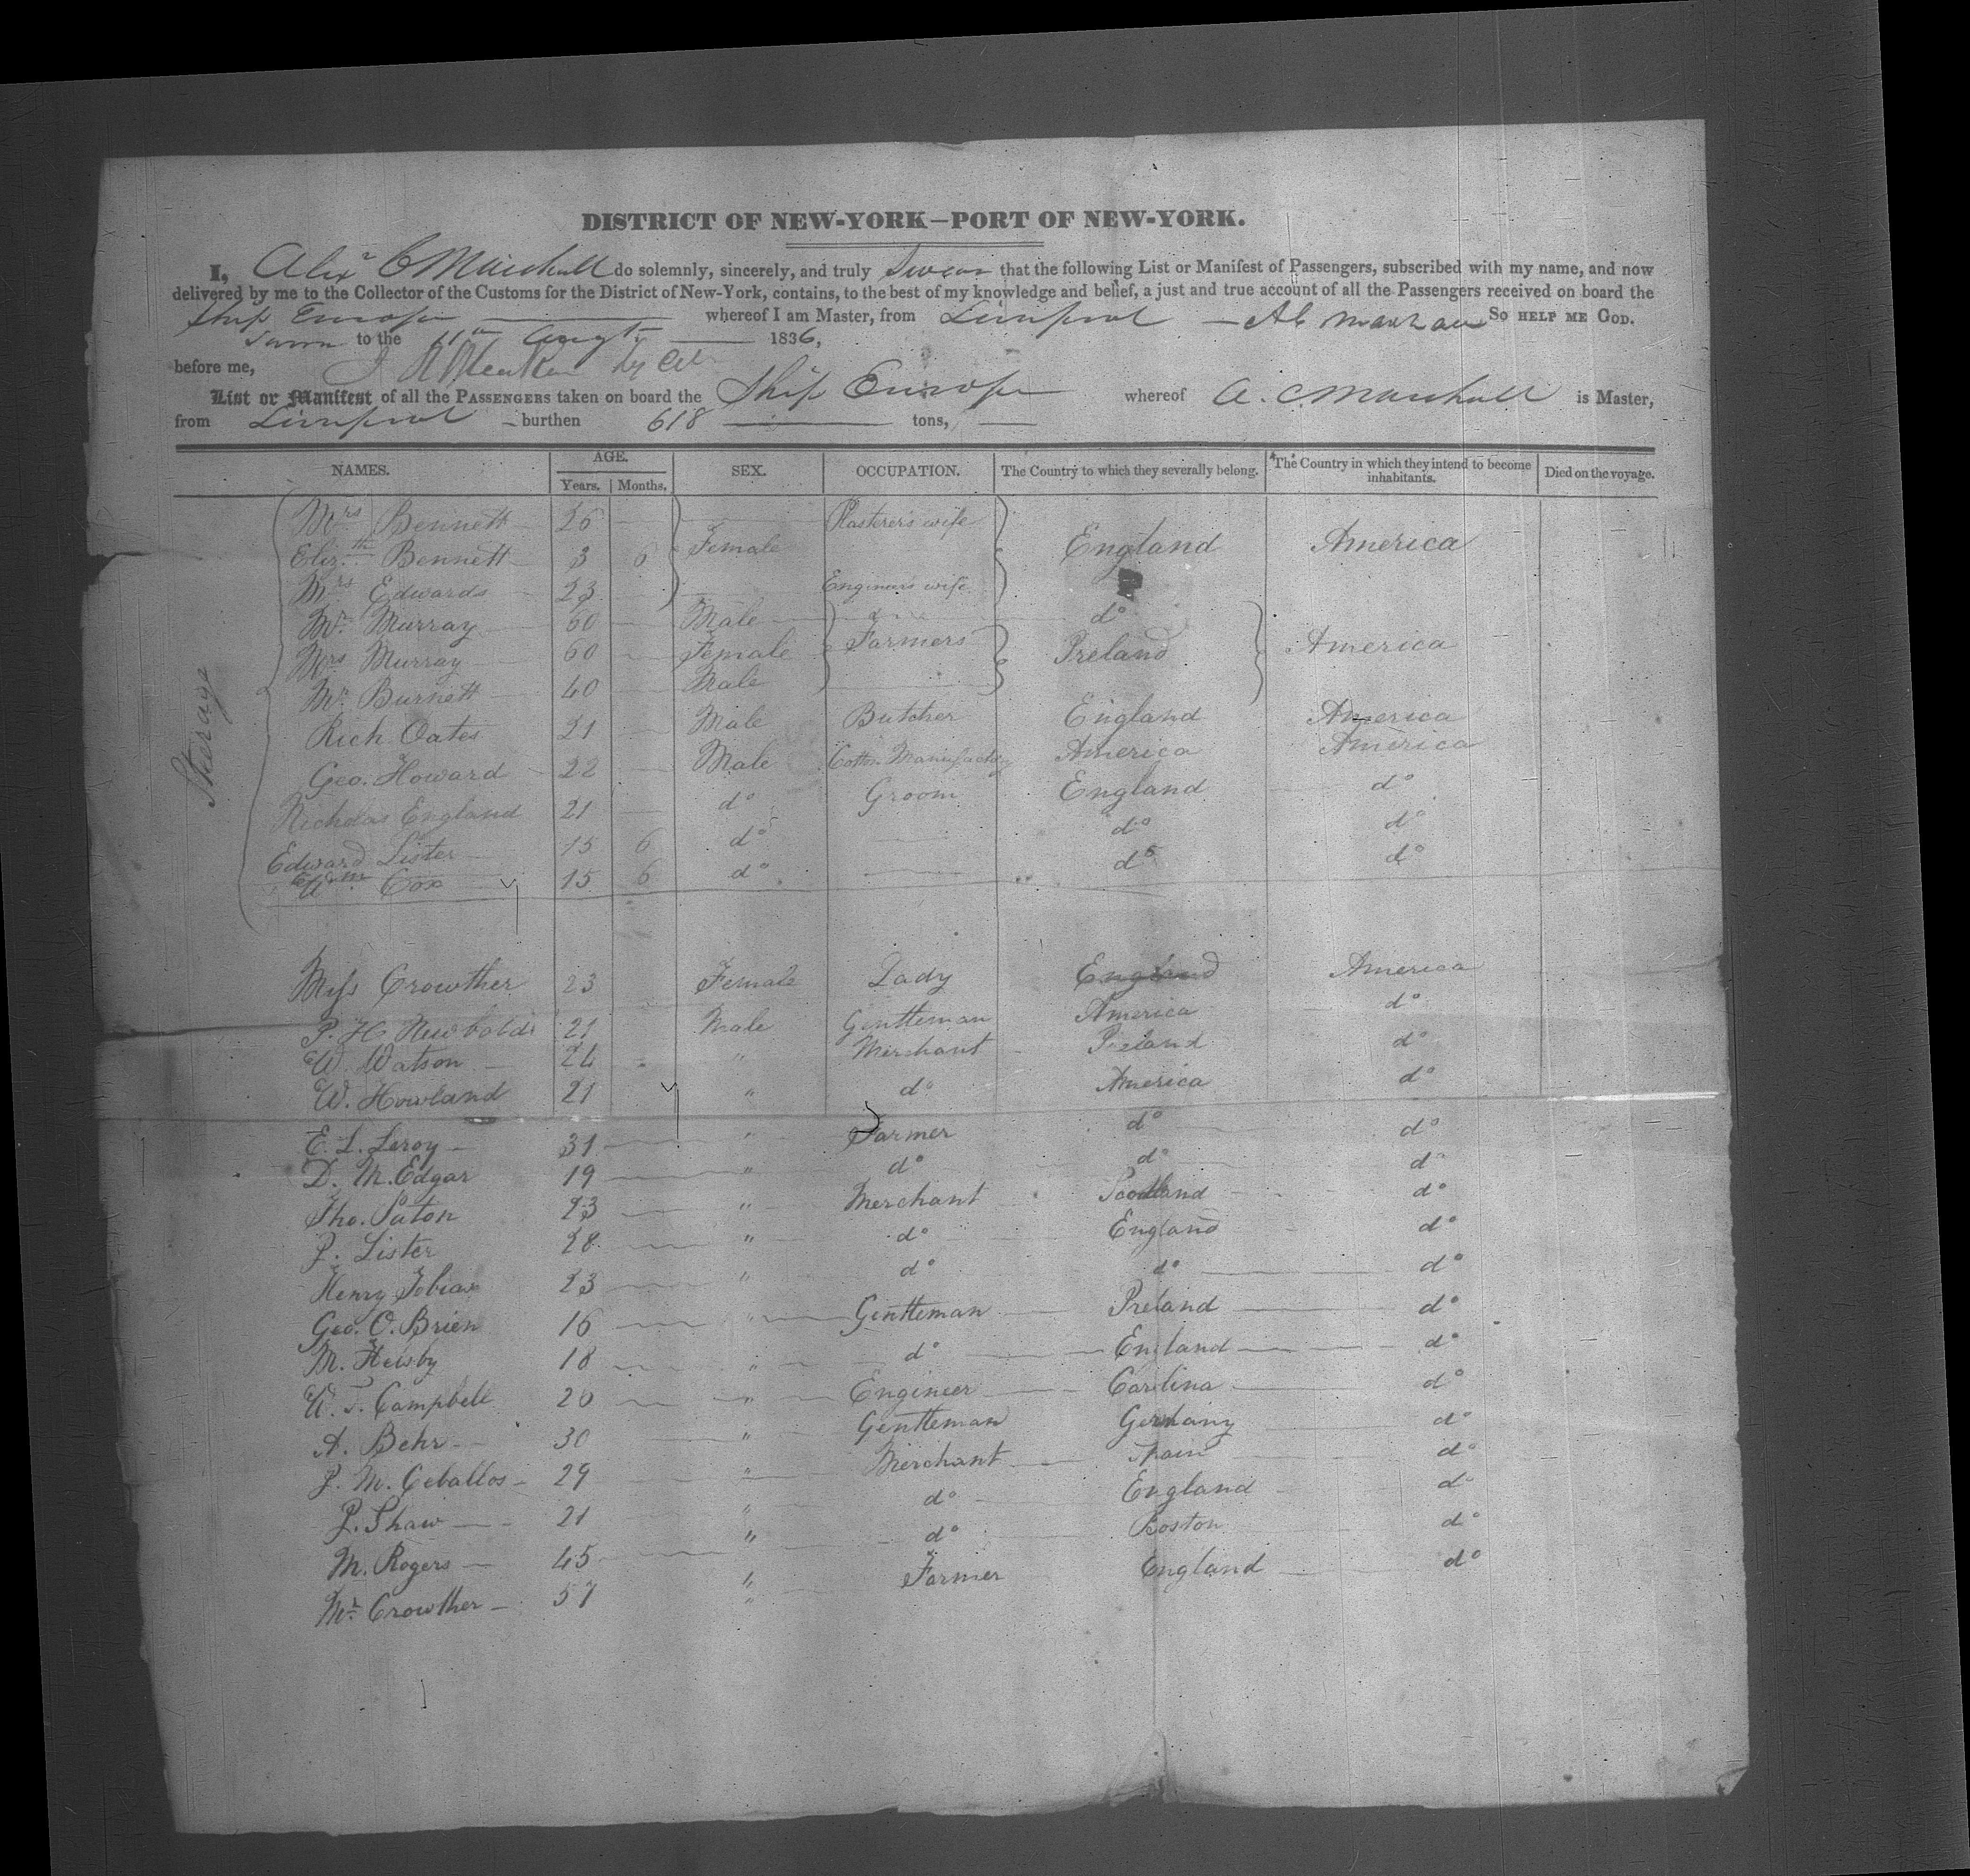 DISTRICT OF NEW-YORK—PORT OF NEW-YORK.
I, Alexr C Marshall do solemnly, sincerely, and truly Swear that the following List or Manifest of Passengers, subscribed with my name, and now
delivered by me to the Collector of the Customs for the District of New-York, contains, to the best of my knowledge and belief, a just and true account of all the Passengers received on board the
Ship Europe whereof I am Master, from Liverpool A C Marshall So HELP ME GOD.
Sworn to the 11th Augt 1836,
before me,
List or Manifest of all the PASSENGERS taken on board the Ship Europe whereof A. C. Marshall is Master,
from Liverpool burthen 618 tons,
NAMES. AGE. Years. Months. SEX. OCCUPATION. The Country to which they severally belong. The Country in which they intend to become inhabitants. Died on the voyage.
Steerage
Mrs Bennett 26 Plasterer's wife
Elizth Bennett 3 6 Female England America
Mrs Edwards 23 Engineers wife
Mr. Murray 60 Male do
Mrs Murray 60 Female Farmers Ireland America
Mr. Burnett 40 Male
Rich Oates 21 Male Butcher England America
Geo. Howard 22 Male Cotton Manufactory America America
Nicholas England 21 do Groom England do
Edward Lister 15 6 do do do
Wm Cox 15 6 do do do
Miss Crowther 23 Female Lady England America
P. H. Newbolds 21 Male Gentleman America do
W. Watson 24 " Merchant Ireland do
W. Howland 21 " do America do
E. L. Leroy 31 " Farmer do do
D. M. Edgar 19 " do do do
Tho. Paton 23 " Merchant Scotland do
J. Lister 28 " do England do
Henry Tobias 23 " do do do
Geo. O. Brien 16 " Gentleman Ireland do
M. 18 " do England do
W. T. Campbell 20 " Engineer Carolina do
A. Behr 30 " Gentleman Germany do
J. M. Ceballos 29 " Merchant Spain do
J. Shaw 21 " do England do
M. Rogers 45 " do Boston do
Mr. Crowther 57 " Farmer England do